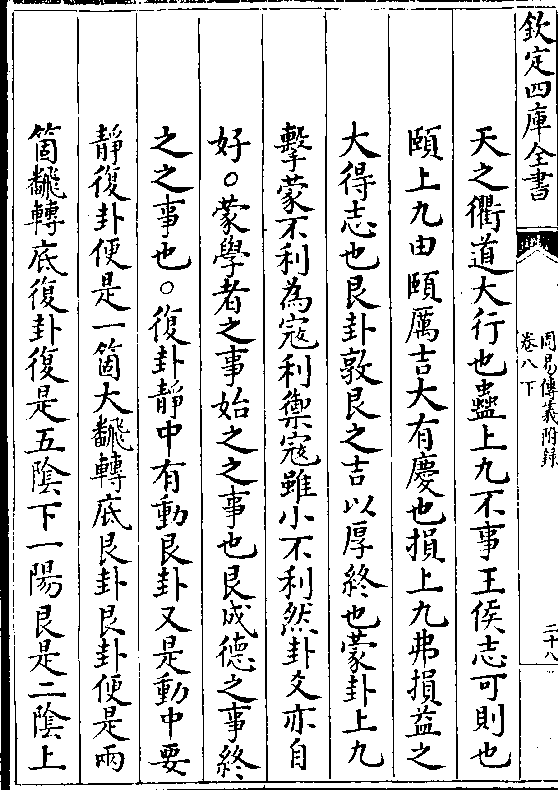 欽定四庫全書
周易傳義附錄
卷八下
二十八
天之衢道大行也蠱上九不事王侯志可則也
頤上九由頤厲吉大有慶也損上九弗損益之
大得志也艮卦敦艮之吉以厚終也蒙卦上九
擊蒙不利為寇利禦寇雖小不利然卦爻亦自
好○蒙學者之事始之之事也艮成德之事終
之之事也○復卦靜中有動艮卦又是動中要
靜復卦便是一箇大飜轉底艮卦艮卦便是兩
箇飜轉底復卦復是五陰下一陽艮是二陰上